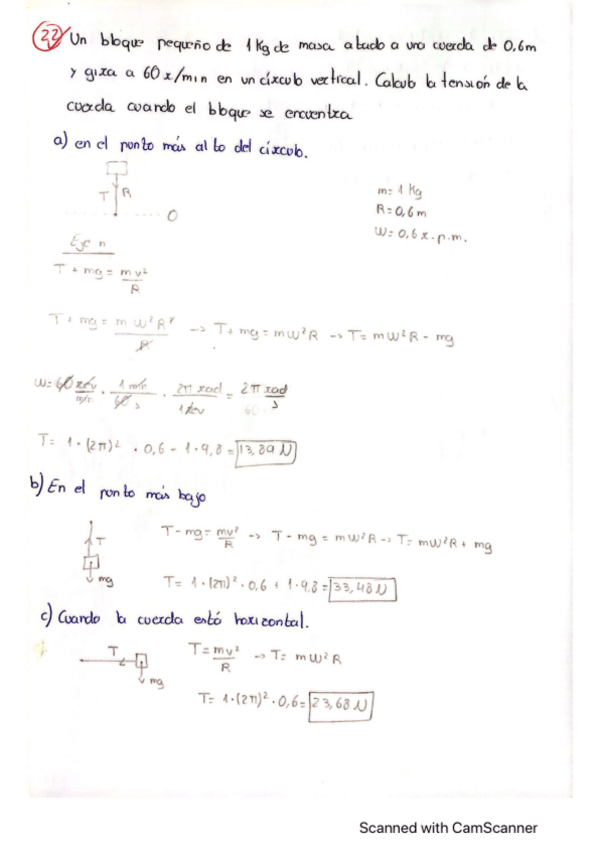 22 Un bloque pequeño de 1 Kg de masa atado a una cuerda de 0,6m
y gira a 60 r/min en un círculo vertical. Calcula la tensión de la
cuerda cuando el bloque se encuentra
a) en el punto más alto del círculo.
T R
O
m= 1 Kg
R= 0,6 m
W= 0,6 r.p.m.
Eje n
T + mg = mv²/R
T + mg = m W² R²/R -> T + mg = m W² R -> T = m W² R - mg
W= 60 rev/min · 1 min/60 s · 2π rad/1 rev = 2π rad/s
T= 1 · (2π)² · 0,6 - 1 · 9,8 = 13,89 N
b) En el punto más bajo
T
mg
T - mg = mv²/R -> T - mg = m W² R -> T= m W² R + mg
T= 1 · (2π)² · 0,6 + 1 · 9,8 = 33,48 N
c) Cuando la cuerda está horizontal.
T
mg
T = mv²/R -> T= m W² R
T= 1 · (2π)² · 0,6 = 23,68 N
Scanned with CamScanner